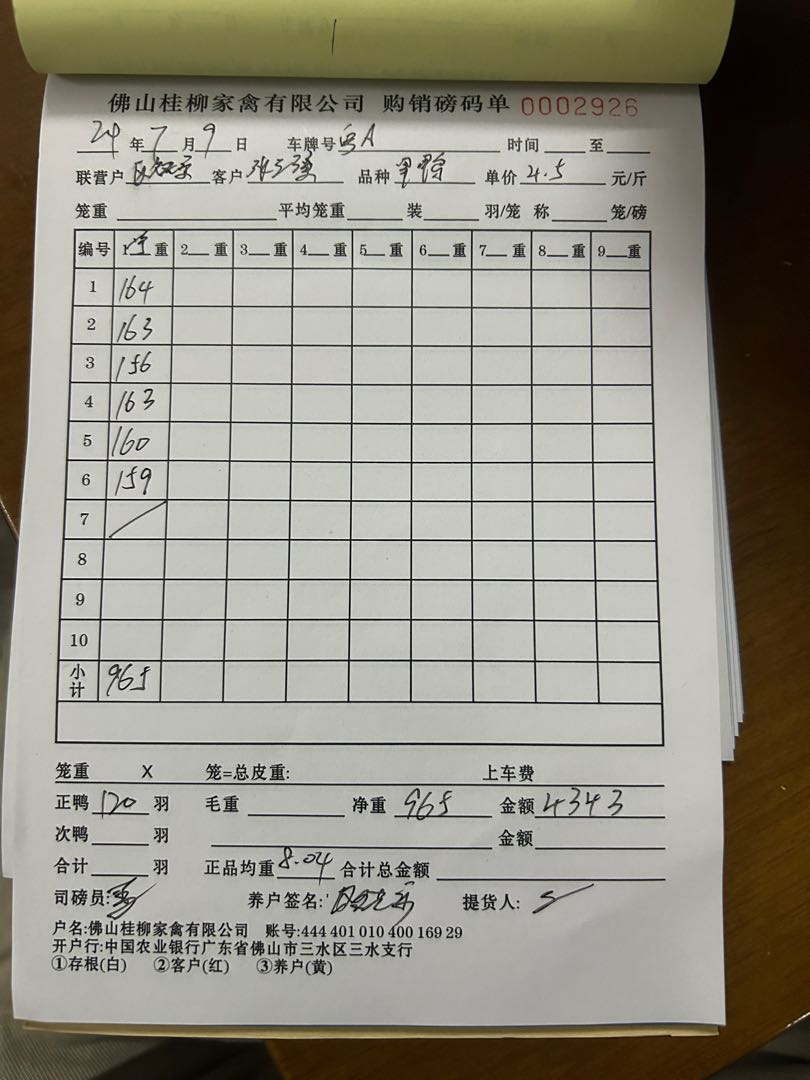 佛山桂柳家禽有限公司 购销磅码单 0002926
24 年 7 月 9 日 车牌号 A 时间 至
联营户 客户 品种 单价 4.5 元/斤
笼重 平均笼重 装 羽/笼 称 笼/磅
编号 1 重 2 重 3 重 4 重 5 重 6 重 7 重 8 重 9 重
1 164
2 163
3 156
4 163
5 160
6 159
7
8
9
10
小计 965
笼重 X 笼=总皮重: 上车费
正鸭 120 羽 毛重 净重 965 金额 4343
次鸭 羽 金额
合计 羽 正品均重 8.04 合计总金额
司磅员: 养户签名: 提货人:
户名:佛山桂柳家禽有限公司 账号:444 401 010 400 169 29
开户行:中国农业银行广东省佛山市三水区三水支行
①存根(白) ②客户(红) ③养户(黄)